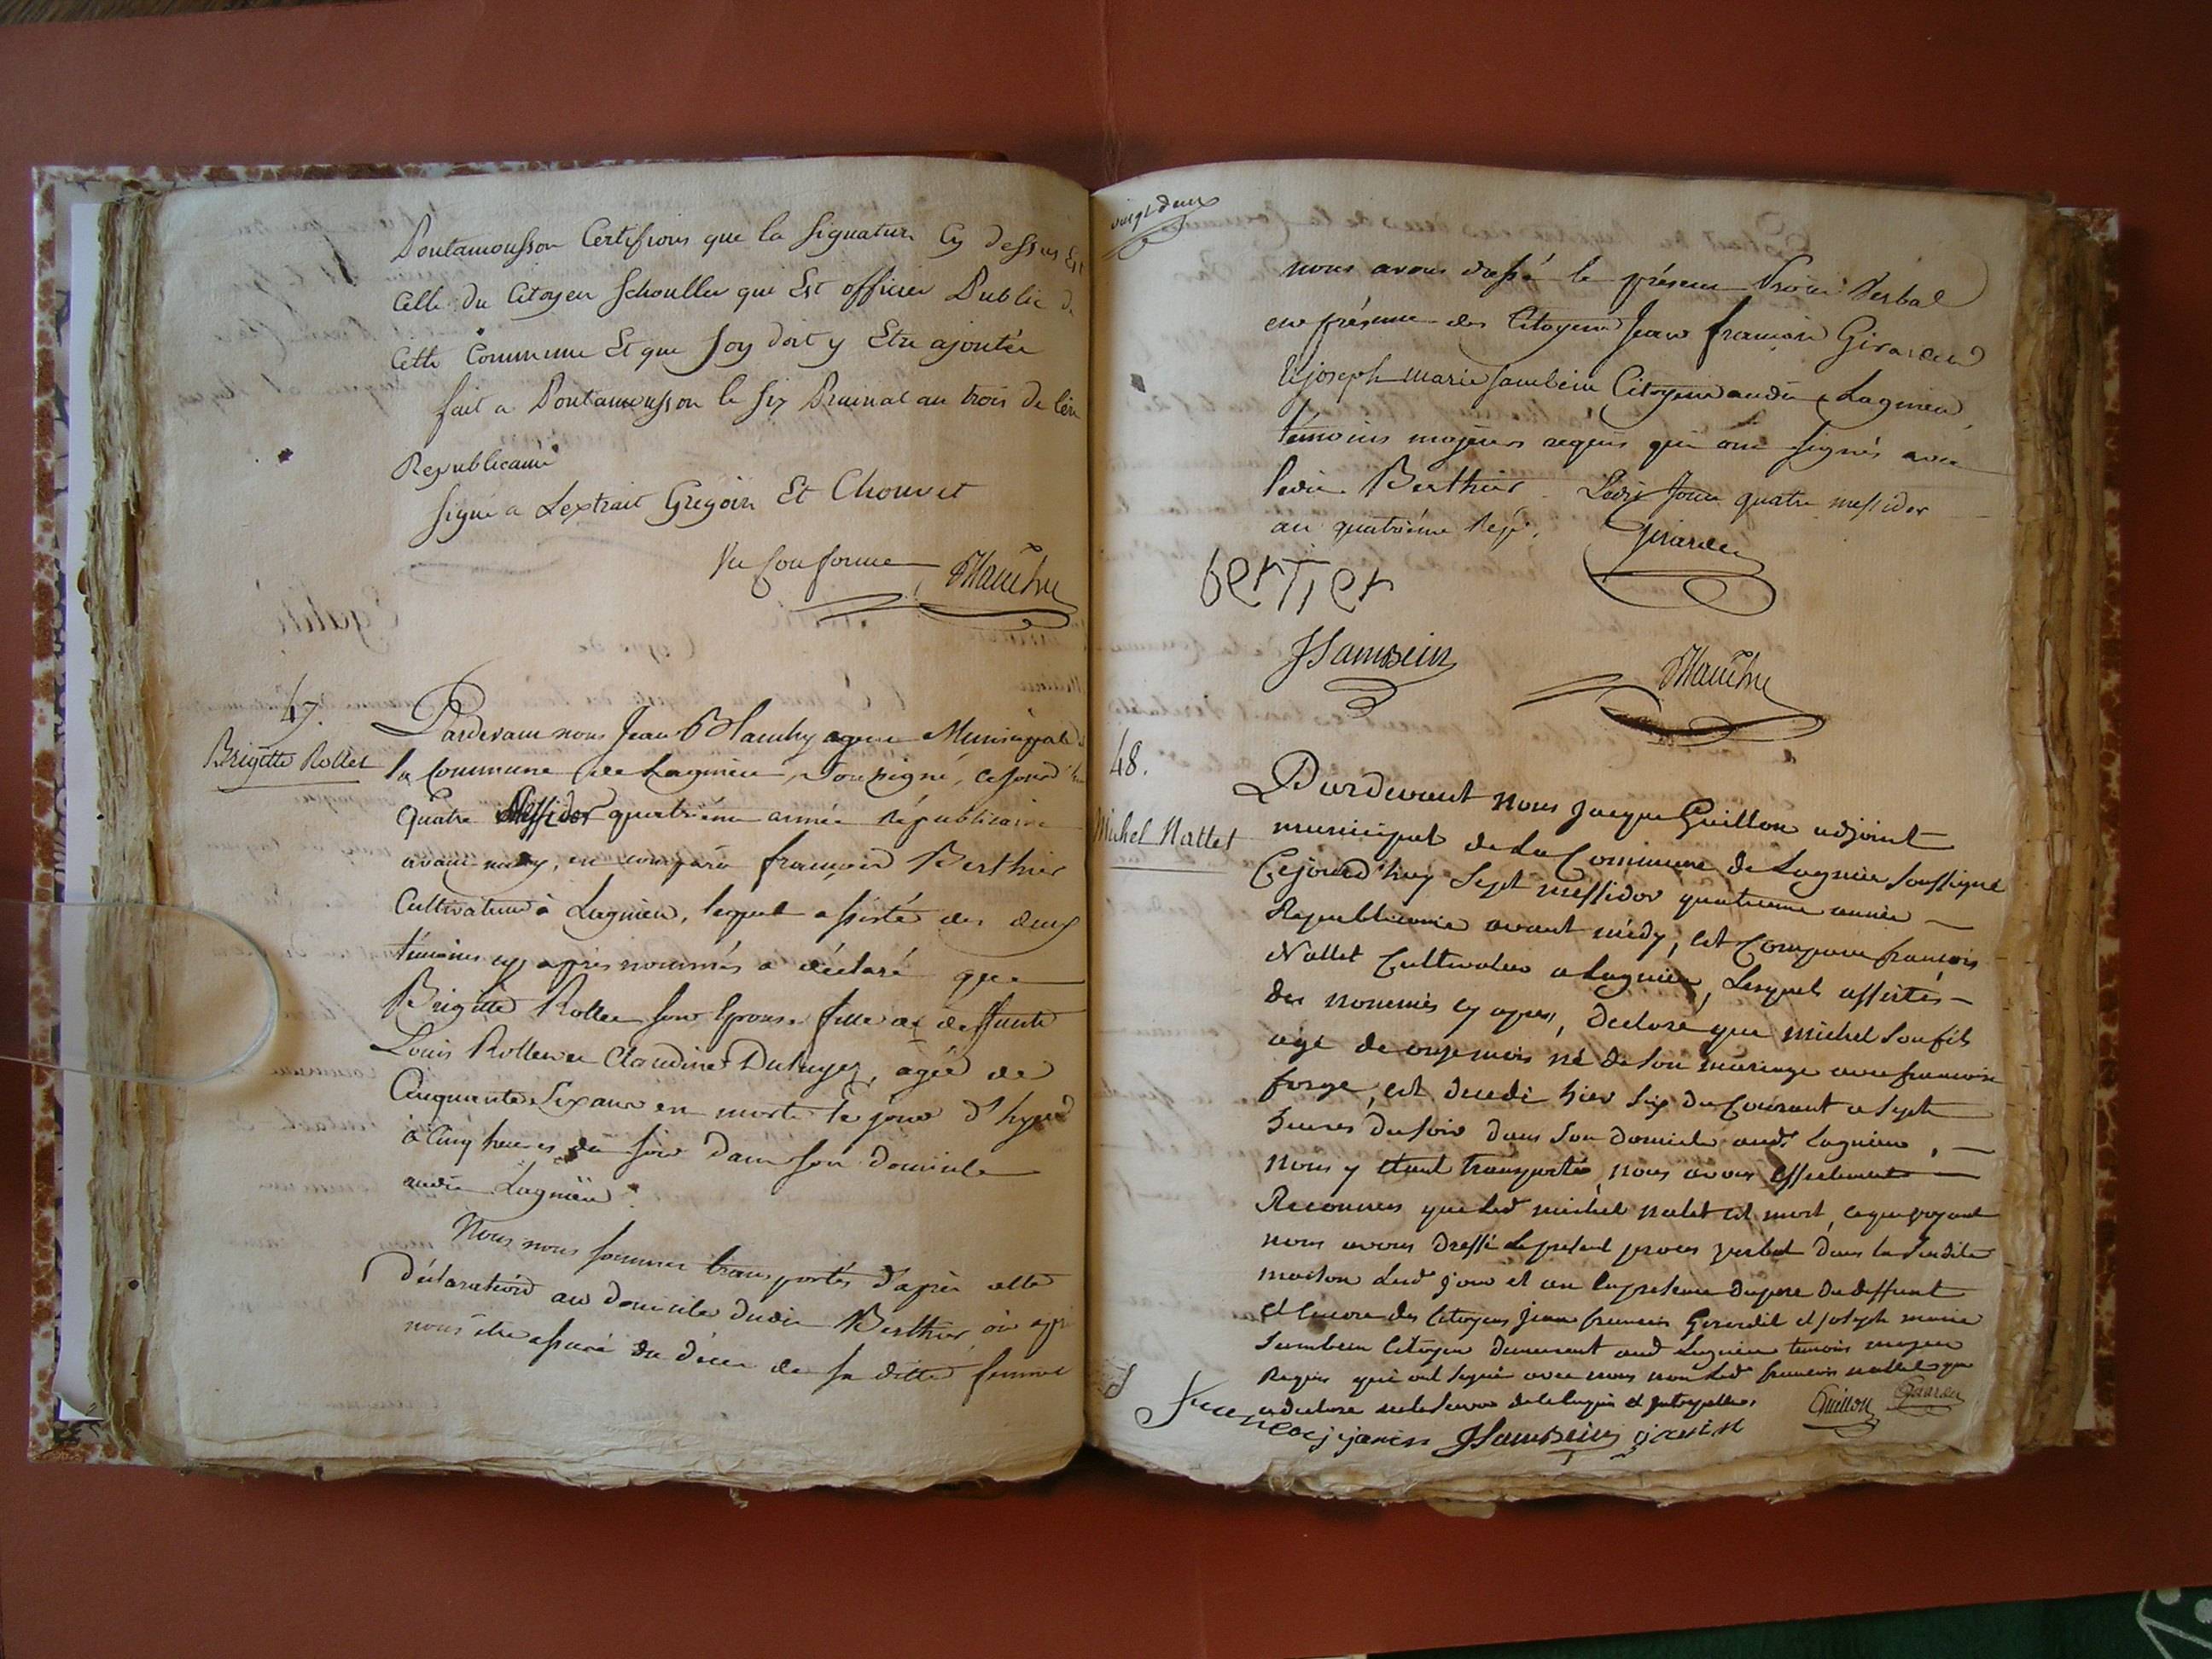 Pontamousson Certifions que la Signature Cy dessus Est
Celle du Citoyen Schouller qui Est officier Public de
Cette Commune Et que foy doit y Etre ajoutée
fait a Pontamousson le six Prairial an trois de l'ère
Republicaine
signé a Lextrait Gregoire Et Chouvet
Vu Conforme
47.
Brigitte Rollet
Pardevant nous Jean Blanchy agent Municipal de
la Commune de Lagnieu, Soussigné, cejourd'hui
Quatre Messidor quatrième année républicaine
avant midy, est comparu françois Berthier
Cultivateur à Lagnieu, lequel assisté des deux
témoins cy après nommés a déclaré que
Brigitte Rollet son Epouse fille de deffunts
Louis Rollet et Claudine, agée de
Cinquante Six ans est morte le jour d'hyer
à Cinq heures du soir dans son domicile
audit Lagnieu.
Nous nous sommes transportés d'après cette
déclaration au domicile dudit Berthier, où après
nous être assuré du décès de sa ditte femme
vingt deux
nous avons dressé le présent Procès Verbal
en présence des Citoyens Jean françois Girardet
et joseph marie Jambein Citoyens audit Lagnieu,
témoins majeurs requis qui ont signés avec
ledit Berthier. Ledit Jour quatre messidor
an quatrième Rép.
Girardet
berTier
JJamBein
48.
Michel Nallet
Pardevant nous Jacque Guillon adjoint
municipal de La Commune de Lagnieu soussigné
Cejourd'huy Sept messidor quatrieme année
Republicaine avant midy, est Comparu francois
Nallet Cultivateur a Lagnieu, Lesquels assistés
des nommés cy apres, declare que michel son fils
agé de onze mois né de son mariage avec francoise
forge, est decedé hier Six du Courant a Sept
heures du soir dans son domicile aud. Lagnieu,
nous y etant transportés, nous avons effectivement
Reconnus que Led michel nalet est mort, ce que voyant
nous avons dressé Le present proces verbal dans la Susdite
maison Lesd jour et an En presence du pere du deffunt
et Encore des Citoyens Jean francois Gerardet et joseph marie
Jambein Citoyen demeurant aud Lagnieu temoins majeur
Requis qui ont signé avec nous non Led francois nallet que
a declare ne le savoir de ce Enquis et Interpellé.
Guillon
Girardet
JJamBein